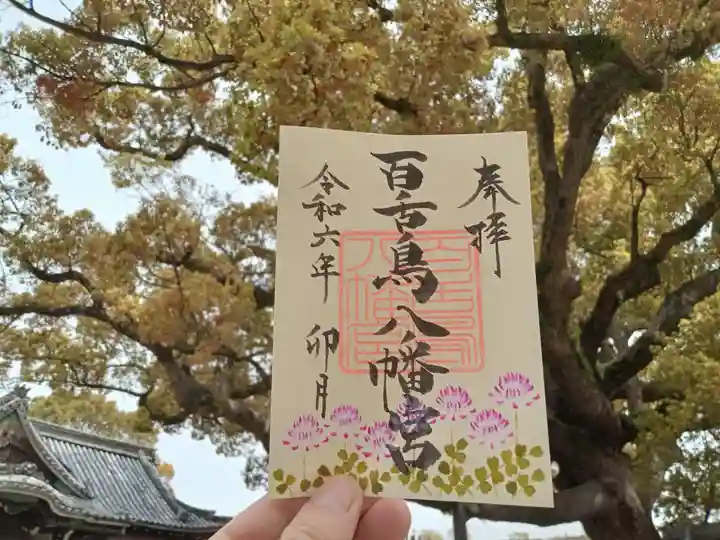 奉拝
百舌鳥八幡宮
令和六年 卯月
百舌鳥八幡宮